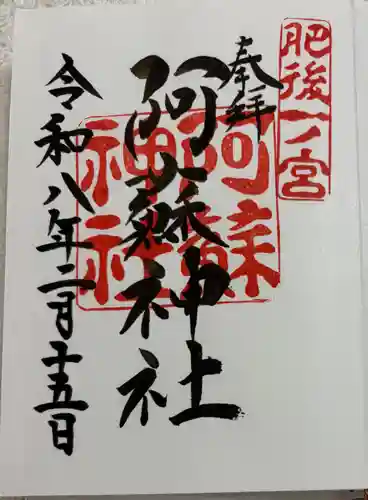 肥後一ノ宮
奉拝
阿蘇神社
阿蘇神社
令和八年二月十五日